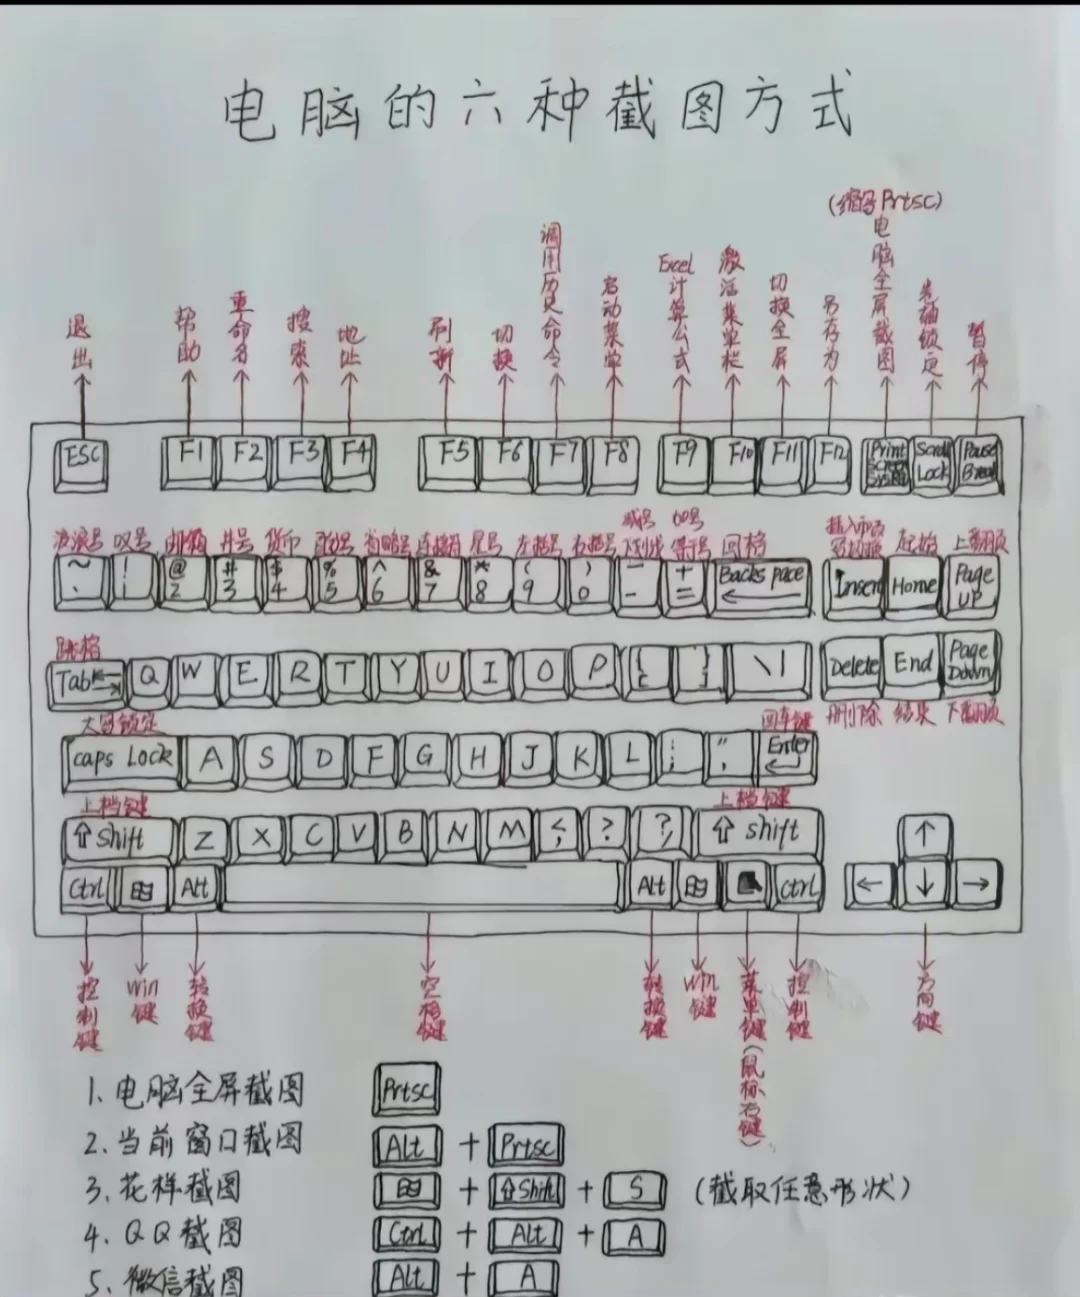 电脑的六种截图方式
(缩写Prtsc)
退出
帮助
重命名
搜索
地址
刷新
切换
调用历史命令
启动菜单
Excel计算公式
激活菜单栏
切换全屏
另存为
电脑全屏截图
卷轴锁定
暂停
ESC F1 F2 F3 F4 F5 F6 F7 F8 F9 F10 F11 F12 Print Screen SysRq Scroll Lock Pause Break
波浪号 叹号 邮箱 井号 货币 百分号 省略号 连接符 星号 左括号 右括号 减号 下划线 加号 等号 回格 起始 上翻页
~ · ! @ 2 # 3 $ 4 % 5 ^ 6 & 7 * 8 ( 9 ) 0 — - + = Backspace ← Insert Home Page UP
跳格
Tab Q W E R T Y U I O P { [ } ] \ | Delete End Page Down
删除 结束 下翻页
大写锁定 回车键
caps Lock A S D F G H J K L : ; " ' Enter
上档键 上档键
⇧ shift Z X C V B N M < , ? ? / ⇧ shift ↑
Ctrl Alt Alt Ctrl ← ↓ →
控制键
Win键
转换键
空格键
转换键
Win键
菜单键(鼠标右键)
控制键
方向键
1、电脑全屏截图 Prtsc
2、当前窗口截图 Alt + Prtsc
3、花样截图 + ⇧Shift + S (截取任意形状)
4、QQ截图 Ctrl + Alt + A
5、微信截图 Alt + A